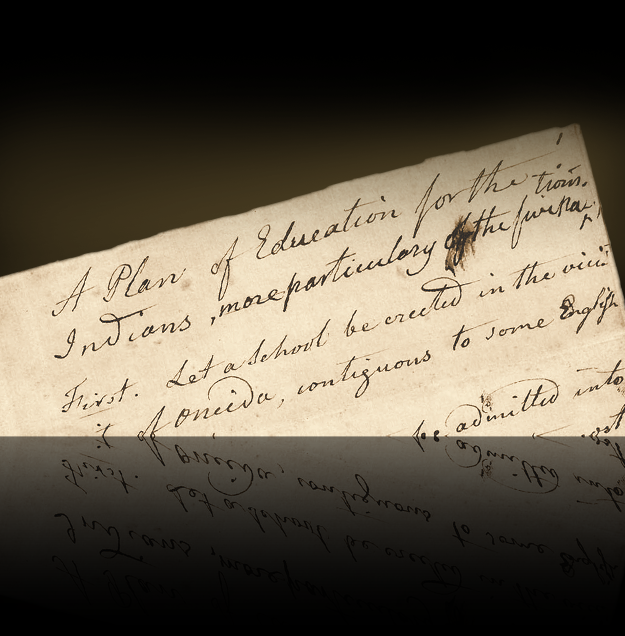 A Plan of Education for the
Indians, more particulary of the five Na- tions.
First. Let a School be erected in the vici
it of Oneida, contiguous to some English
be admitted into